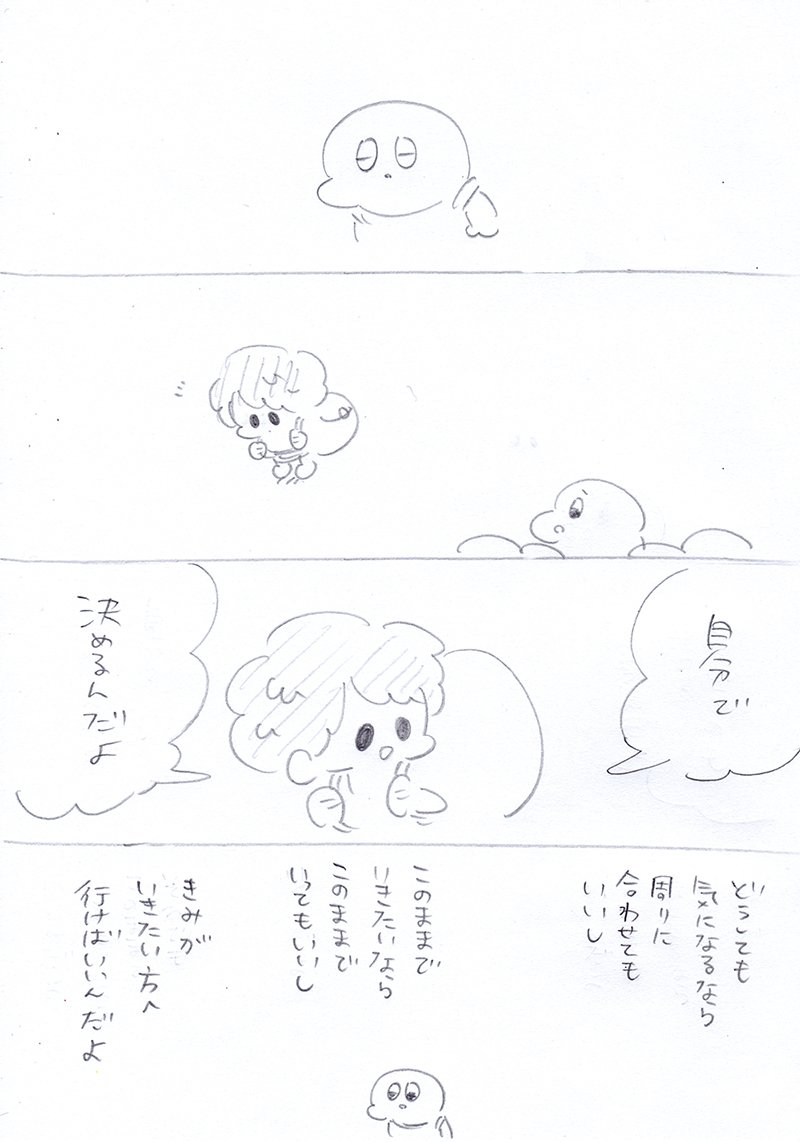 自分で
決めるんだよ
どうしても
気になるなら
周りに
合わせても
いいし
このままで
いきたいなら
このままで
いってもいいし
きみが
いきたい方へ
行けばいいんだよ